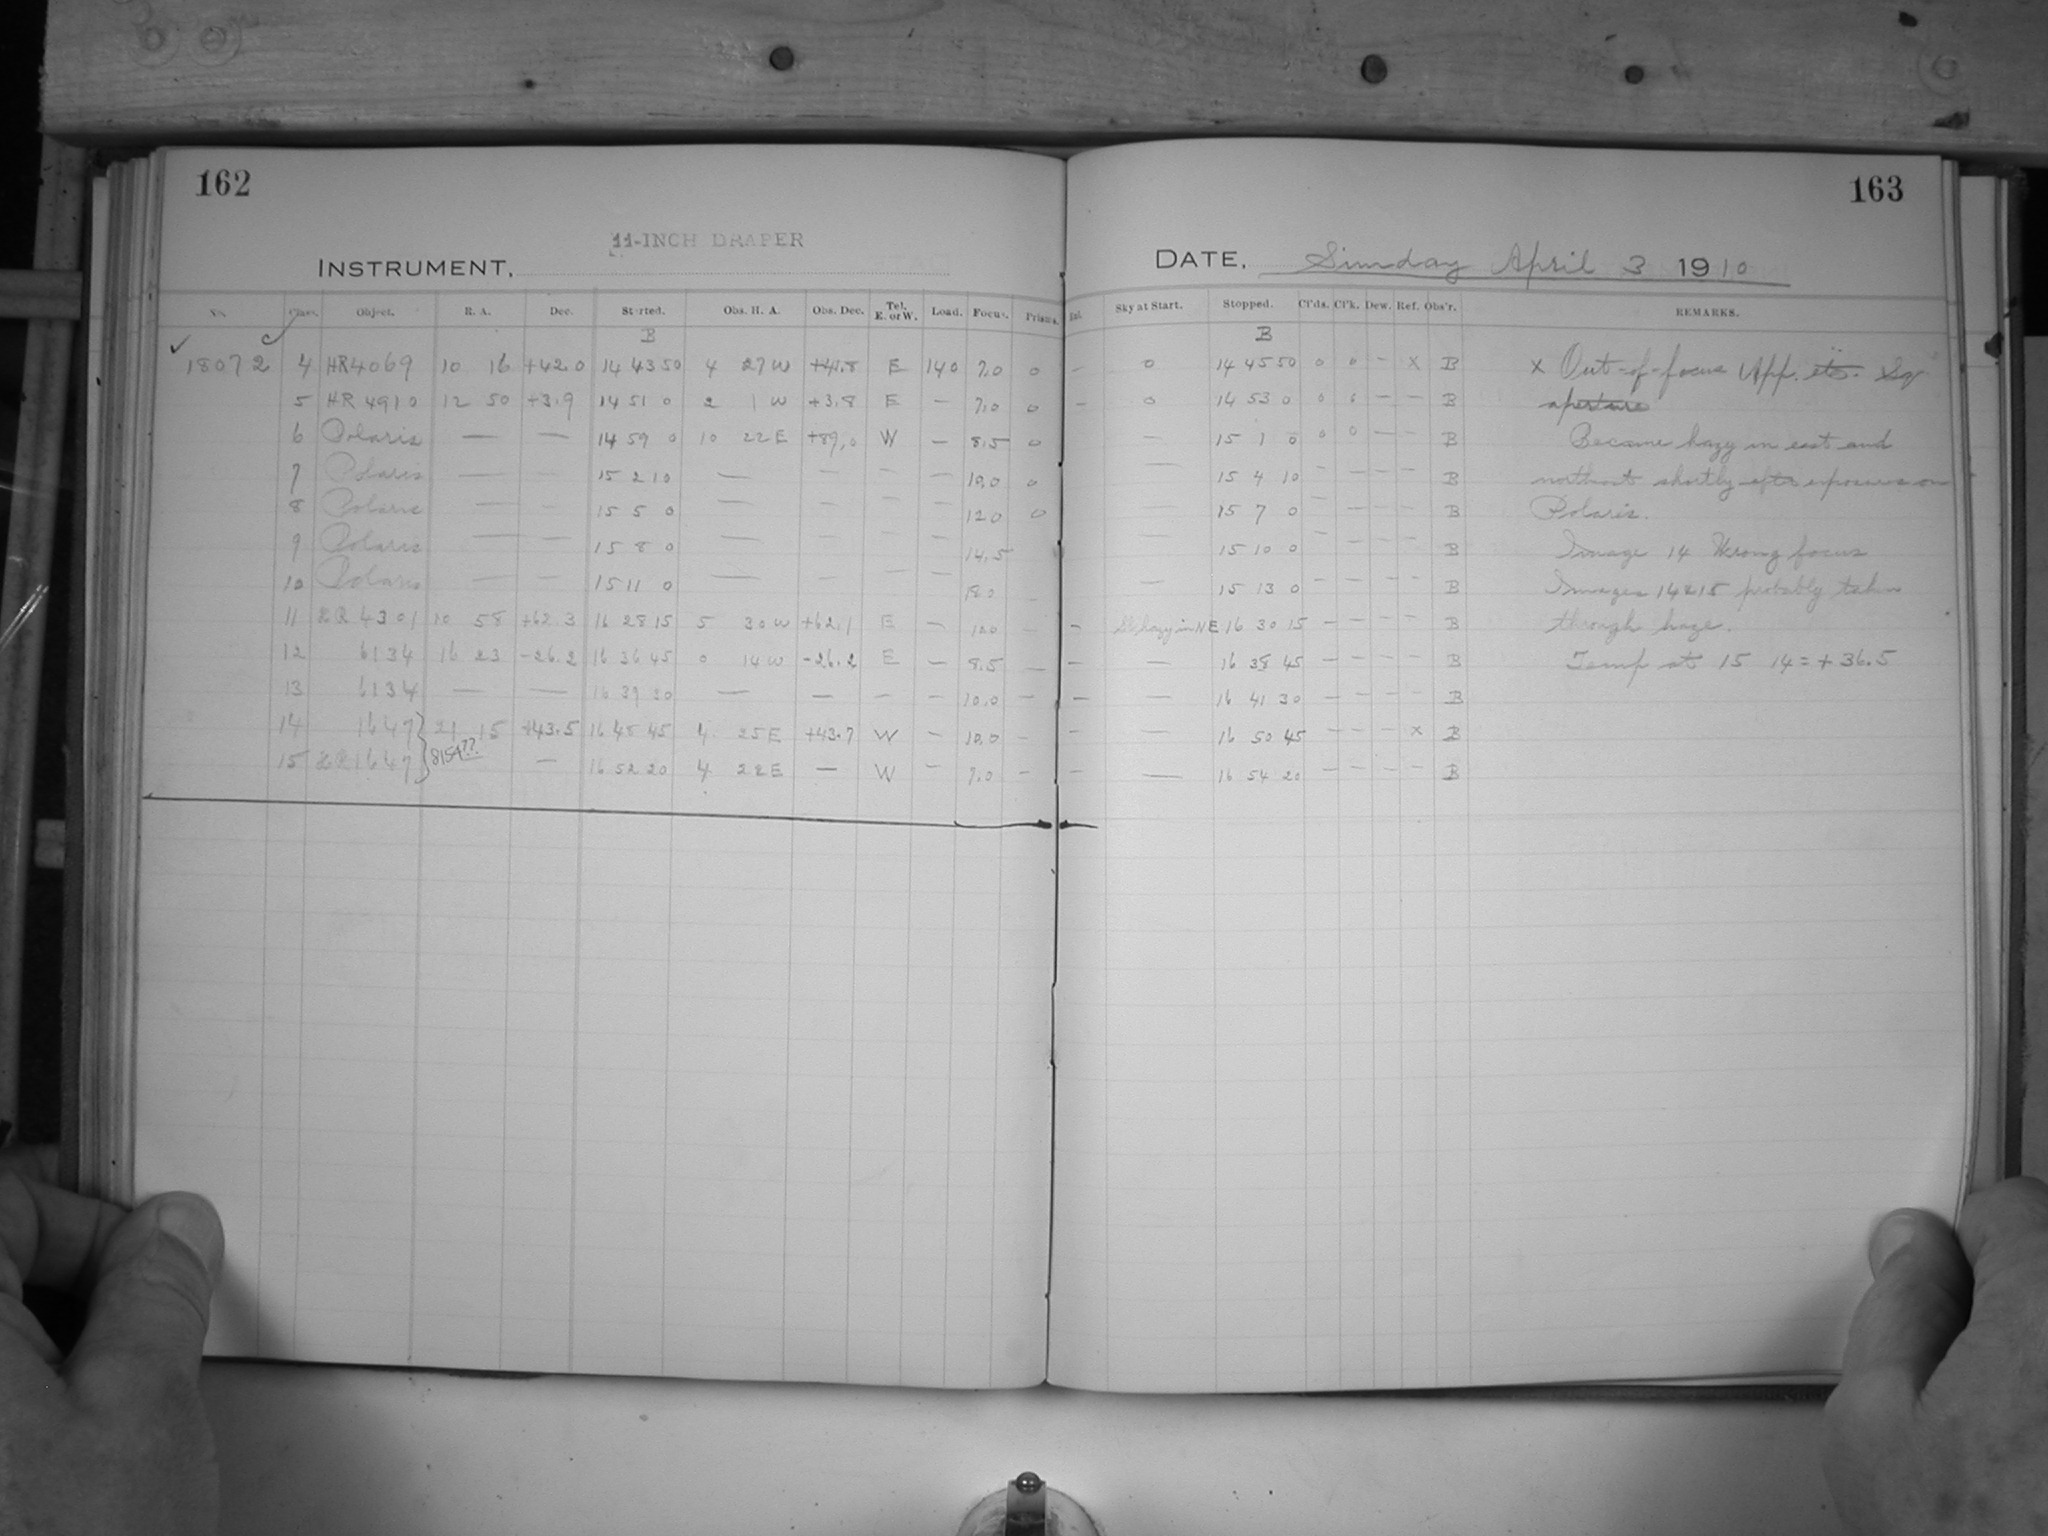 162
11-INCH DRAPER
INSTRUMENT,
No. Class. Object. R. A. Dec. Started. Obs. H. A. Obs. Dec. Tel. E. or W. Load. Focus. Prisms.
B
18072 4 HR4069 10 16 +42.0 14 43 50 4 27 W +41.8 E 140 7.0 0
5 HR 4910 12 50 +3.9 14 51 0 2 1 W +3.8 E — 7.0 0
6 Polaris — — 14 59 0 10 22 E +89.0 W — 8.5 0
7 Polaris — — 15 2 10 — — — — 10.0 0
8 Polaris — — 15 5 0 — — — — 12.0 0
9 Polaris — — 15 8 0 — — — — 14.5
10 Polaris — — 15 11 0 — — — — 18.0 —
11 HR 4301 10 58 +62.3 16 28 15 5 30 W +62.1 E — 10.0 —
12 6134 16 23 -26.2 16 36 45 0 14 W -26.2 E — 8.5 —
13 6134 — — 16 39 30 — — — — 10.0 —
14 1647 21 15 +43.5 16 48 45 4 25 E +43.7 W — 10.0 —
15 HR1647 8154?? — 16 52 20 4 22 E — W — 7.0 —
163
DATE, Sunday April 3 1910
Sky at Start. Stopped. Cl'ds. Cl'k. Dew. Ref. Obs'r. REMARKS.
B
— 0 14 45 50 0 0 — x B x Out-of-focus App. etc. Sq
— 0 14 53 0 0 0 — — B aperture
— 15 1 0 0 0 — — B Became hazy in east and
— 15 4 10 — — — — B northeast shortly after exposures on
— 15 7 0 — — — — B Polaris.
— 15 10 0 — — — — B Image 14 Wrong focus
— 15 13 0 — — — — B Images 14 & 15 probably taken
— Sl hazy in NE 16 30 15 — — — — B through haze.
— — 16 38 45 — — — — B Temp at 15 14 = + 36.5
— — 16 41 30 — — — — B
— — 16 50 45 — — — x B
— — 16 54 20 — — — — B